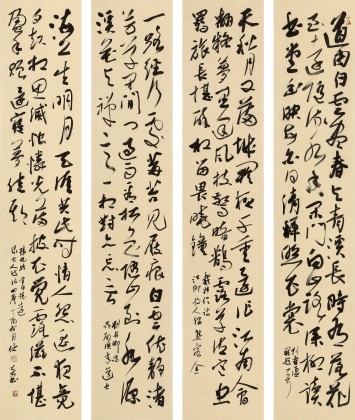 道由白云尽春与青溪长时有落花
至远随流水香闲门向山路深柳读
书堂幽映每白日清辉照衣裳
天秋月又满城阙夜千重还作江南会
翻疑梦里逢风枝惊暗鹊露草泣寒虫
羁旅长堪醉相留畏晓钟
戴叔伦诗
江乡故人偶集客舍
一路经行处莓苔见屐痕白云依静渚
芳草闭闲门过雨看松色随山到水源
溪花与禅意相对亦忘言
刘长卿诗
寻南溪常道士
海上生明月天涯共此时情人怨遥夜竟
夕起相思灭烛怜光满披衣觉露滋不堪
盈手赠还寝梦佳期